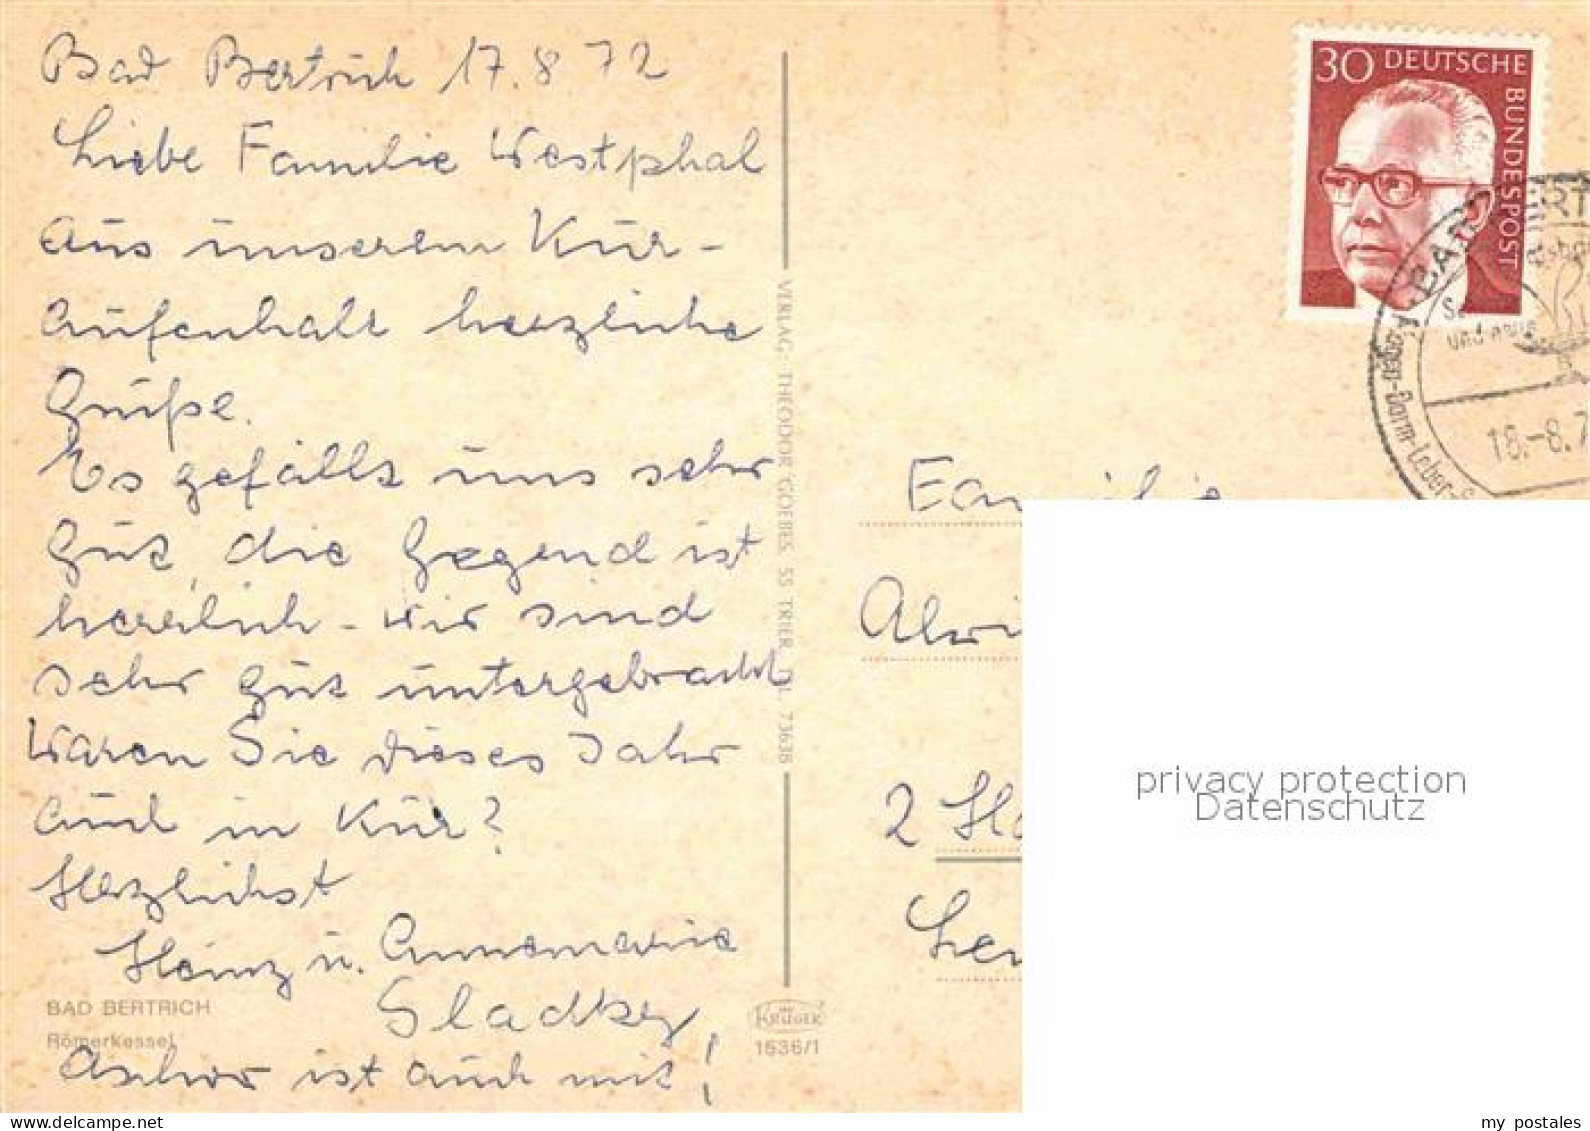 Bad Bertrich 17.8 72
Liebe Familie Westphal
aus unserem Kur-
aufenhalt herzliche
Grüße.
Es gefällt uns sehr
gut, die Gegend ist
herrlich - wir sind
sehr gut untergebracht
Waren Sie dieses Jahr
auch in Kur?
Herzlichst
Heinz u. Annemarie
Sladkey
ist auch mit!
BAD BERTRICH
Römerkessel
VERLAG: THEODOR GOEBES 55 TRIER, 73638
KRÜGER
1536/1
30 DEUTSCHE
BUNDESPOST
BAD BERT
und
Darm-Leber-
18.-8.7
Familie
2
privacy protection
Datenschutz
delcampe.net
my_postales